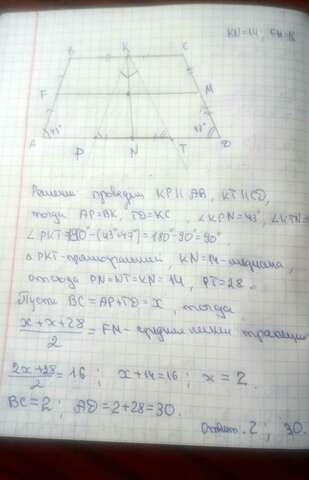 KN=14, FM=16
B K C
F M
A 43° P N T 47° D
Решение: проведём KP || AB, KT || CD,
тогда AP=BK, TD=KC, ∠KPN=43°, ∠KTN=
∠PKT=180°-(43°+47°)=180°-90°=90°
PKT-прямоугольный KN=14-медиана,
отсюда PN=NT=KN=14, PT=28.
Пусть BC=AP+TD=x, тогда
x+x+28/2 = FM- средняя линия трапеции
2x+28/2=16; x+14=16; x=2.
BC=2; AD=2+28=30.
Ответ: 2; 30.